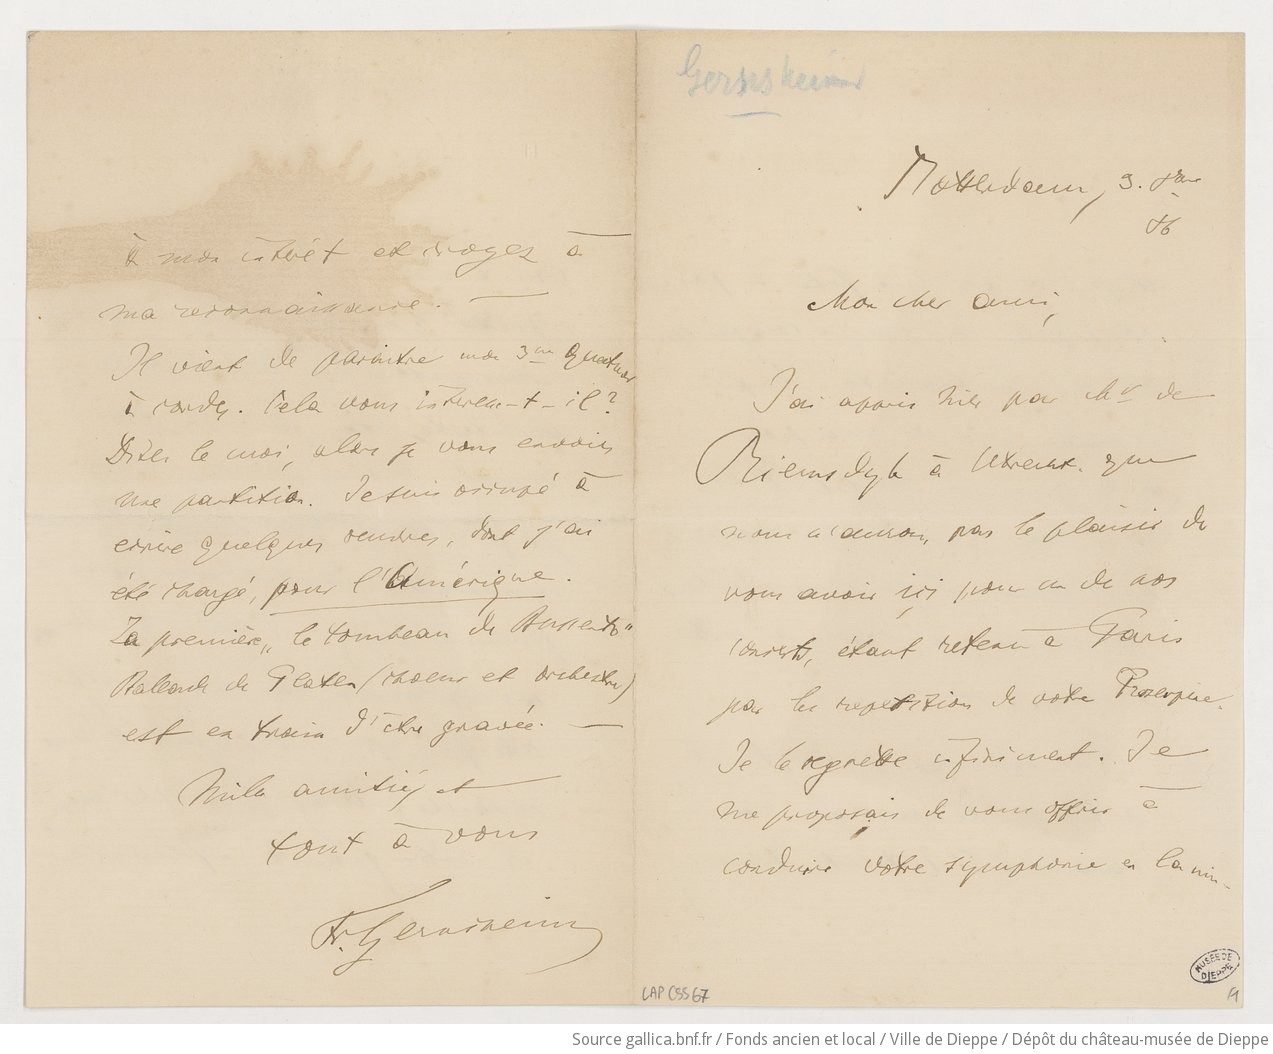 Gernsheim
Rotterdam, 3. 8bre
86
Mon cher ami,
J'ai appris hier par Mr de
Riemsdyk à Utrecht que
nous n'aurons pas le plaisir de
vous avoir ici pour un de nos
concerts, étant retenu à Paris
par les répétitions de votre Proserpine.
Je le regrette infiniment. Je
me proposais de vous offrir à
conduire votre symphonie en la min-
à mon intérêt et croyez à
ma reconnaissance.
Il vient de paraître mon 3me Quatuor
à cordes. Cela vous intéresse-t-il?
Dites le moi, alors je vous envoie
une partition. Je suis occupé à
écrire quelques oeuvres, dont j'ai
été chargé, pour l'Amérique.
La première, „le tombeau de Busento"
Ballade de Platen (choeur et orchestre)
est en train d'être gravée.
Mille amitiés et
tout à vous
Fr. Gernsheim
LAP C55 67
MUSÉE DE DIEPPE
Source gallica.bnf.fr / Fonds ancien et local / Ville de Dieppe / Dépôt du château-musée de Dieppe